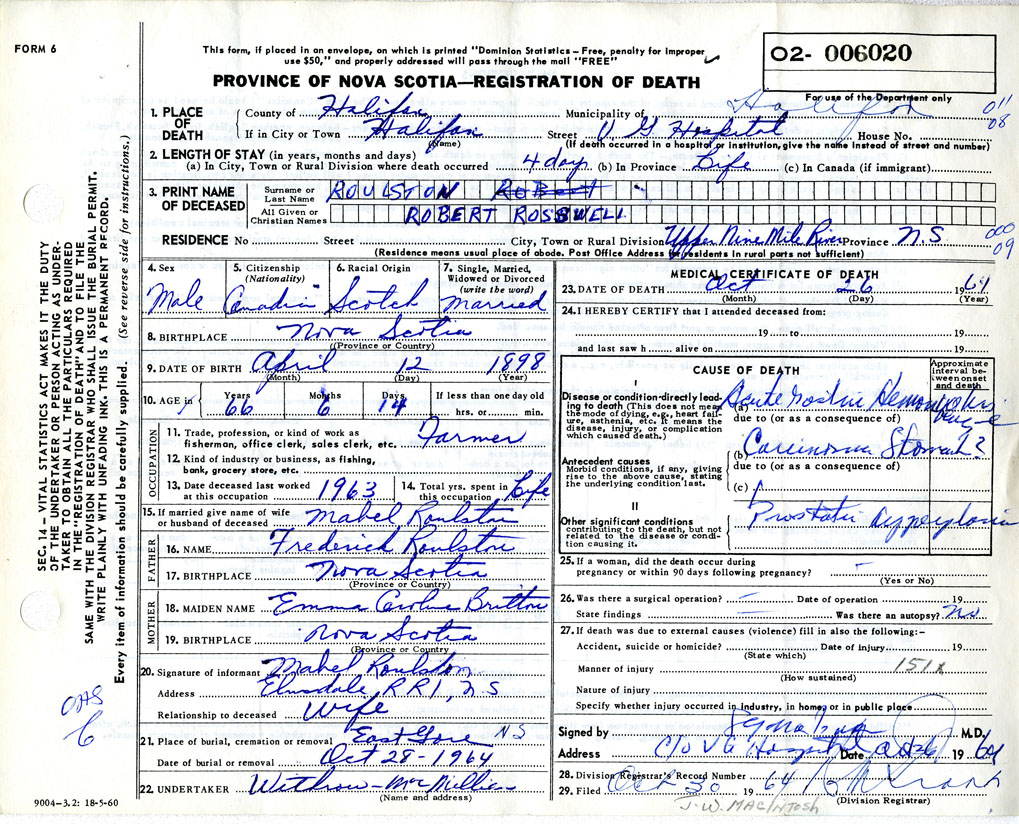 FORM 6
This form, if placed in an envelope, on which is printed "Dominion Statistics – Free, penalty for improper
use $50," and properly addressed will pass through the mail "FREE"
PROVINCE OF NOVA SCOTIA—REGISTRATION OF DEATH
02- 006020
For use of the Department only
011
08
1. PLACE OF DEATH
County of Halifax Municipality of Halifax
If in City or Town Halifax Street V G Hospital House No.
(Name) (If death occurred in a hospital or institution, give the name instead of street and number)
2. LENGTH OF STAY (in years, months and days)
(a) In City, Town or Rural Division where death occurred 4 day (b) In Province Life (c) In Canada (if immigrant)
3. PRINT NAME OF DECEASED
Surname or Last Name ROULSTON Robert
All Given or Christian Names ROBERT ROSSWELL
RESIDENCE No Street City, Town or Rural Division Upper Nine Mile River Province N.S
000
09
(Residence means usual place of abode. Post Office Address for residents in rural parts not sufficient)
4. Sex
Male
5. Citizenship
(Nationality)
Canadin
6. Racial Origin
Scotch
7. Single, Married, Widowed or Divorced
(write the word)
Married
8. BIRTHPLACE Nova Scotia
(Province or Country)
9. DATE OF BIRTH April 12 1898
(Month) (Day) (Year)
10. AGE in Years Months Days If less than one day old
66 6 14 hrs. or min.
OCCUPATION
11. Trade, profession, or kind of work as
fisherman, office clerk, sales clerk, etc. Farmer
12. Kind of industry or business, as fishing,
bank, grocery store, etc.
13. Date deceased last worked
at this occupation 1963
14. Total yrs. spent in
this occupation Life
15. If married give name of wife
or husband of deceased Mabel Roulston
FATHER
16. NAME Frederick Roulston
17. BIRTHPLACE Nova Scotia
(Province or Country)
MOTHER
18. MAIDEN NAME Emma Caroline Britton
19. BIRTHPLACE Nova Scotia
(Province or Country)
20. Signature of informant Mabel Roulston
Address Elmsdale RR1, N S
Relationship to deceased Wife
21. Place of burial, cremation or removal East Gore NS
Date of burial or removal Oct 28 - 1964
22. UNDERTAKER Withrow - McMillin
(Name and address)
MEDICAL CERTIFICATE OF DEATH
23. DATE OF DEATH Oct 26 1964
(Month) (Day) (Year)
24. I HEREBY CERTIFY that I attended deceased from:
19 to 19
and last saw h alive on 19
CAUSE OF DEATH
Approximate interval between onset and death
I
Disease or condition directly leading to death (This does not mean the mode of dying, e.g., heart failure, asthenia, etc. It means the disease, injury, or complication which caused death.)
(a) Acute Gastric Hemorrhage
due to (or as a consequence of)
Antecedent causes
Morbid conditions, if any, giving rise to the above cause, stating the underlying condition last.
(b) Carcinoma Stomach?
due to (or as a consequence of)
(c)
II
Other significant conditions
contributing to the death, but not related to the disease or condition causing it.
Prostatic Hyperplasia
25. If a woman, did the death occur during
pregnancy or within 90 days following pregnancy? –
(Yes or No)
26. Was there a surgical operation? – Date of operation 19
State findings – Was there an autopsy? No
27. If death was due to external causes (violence) fill in also the following:–
Accident, suicide or homicide? Date of injury 19
(State which)
Manner of injury 151x
(How sustained)
Nature of injury
Specify whether injury occurred in industry, in home, or in public place
Signed by M.D.
Address C/O V G Hospital Date Oct 26 1964
28. Division Registrar's Record Number
29. Filed Oct 30 1964
(Division Registrar)
J.W. MACINTOSH
SEC. 14— VITAL STATISTICS ACT MAKES IT THE DUTY
OF THE UNDERTAKER OR PERSON ACTING AS UNDER-
TAKER TO OBTAIN ALL THE PARTICULARS REQUIRED
IN THE "REGISTRATION OF DEATH" AND TO FILE THE
SAME WITH THE DIVISION REGISTRAR WHO SHALL ISSUE THE BURIAL PERMIT.
WRITE PLAINLY WITH UNFADING INK. THIS IS A PERMANENT RECORD.
Every item of information should be carefully supplied. (See reverse side for instructions.)
OAS
6
9004–3.2: 18-5-60